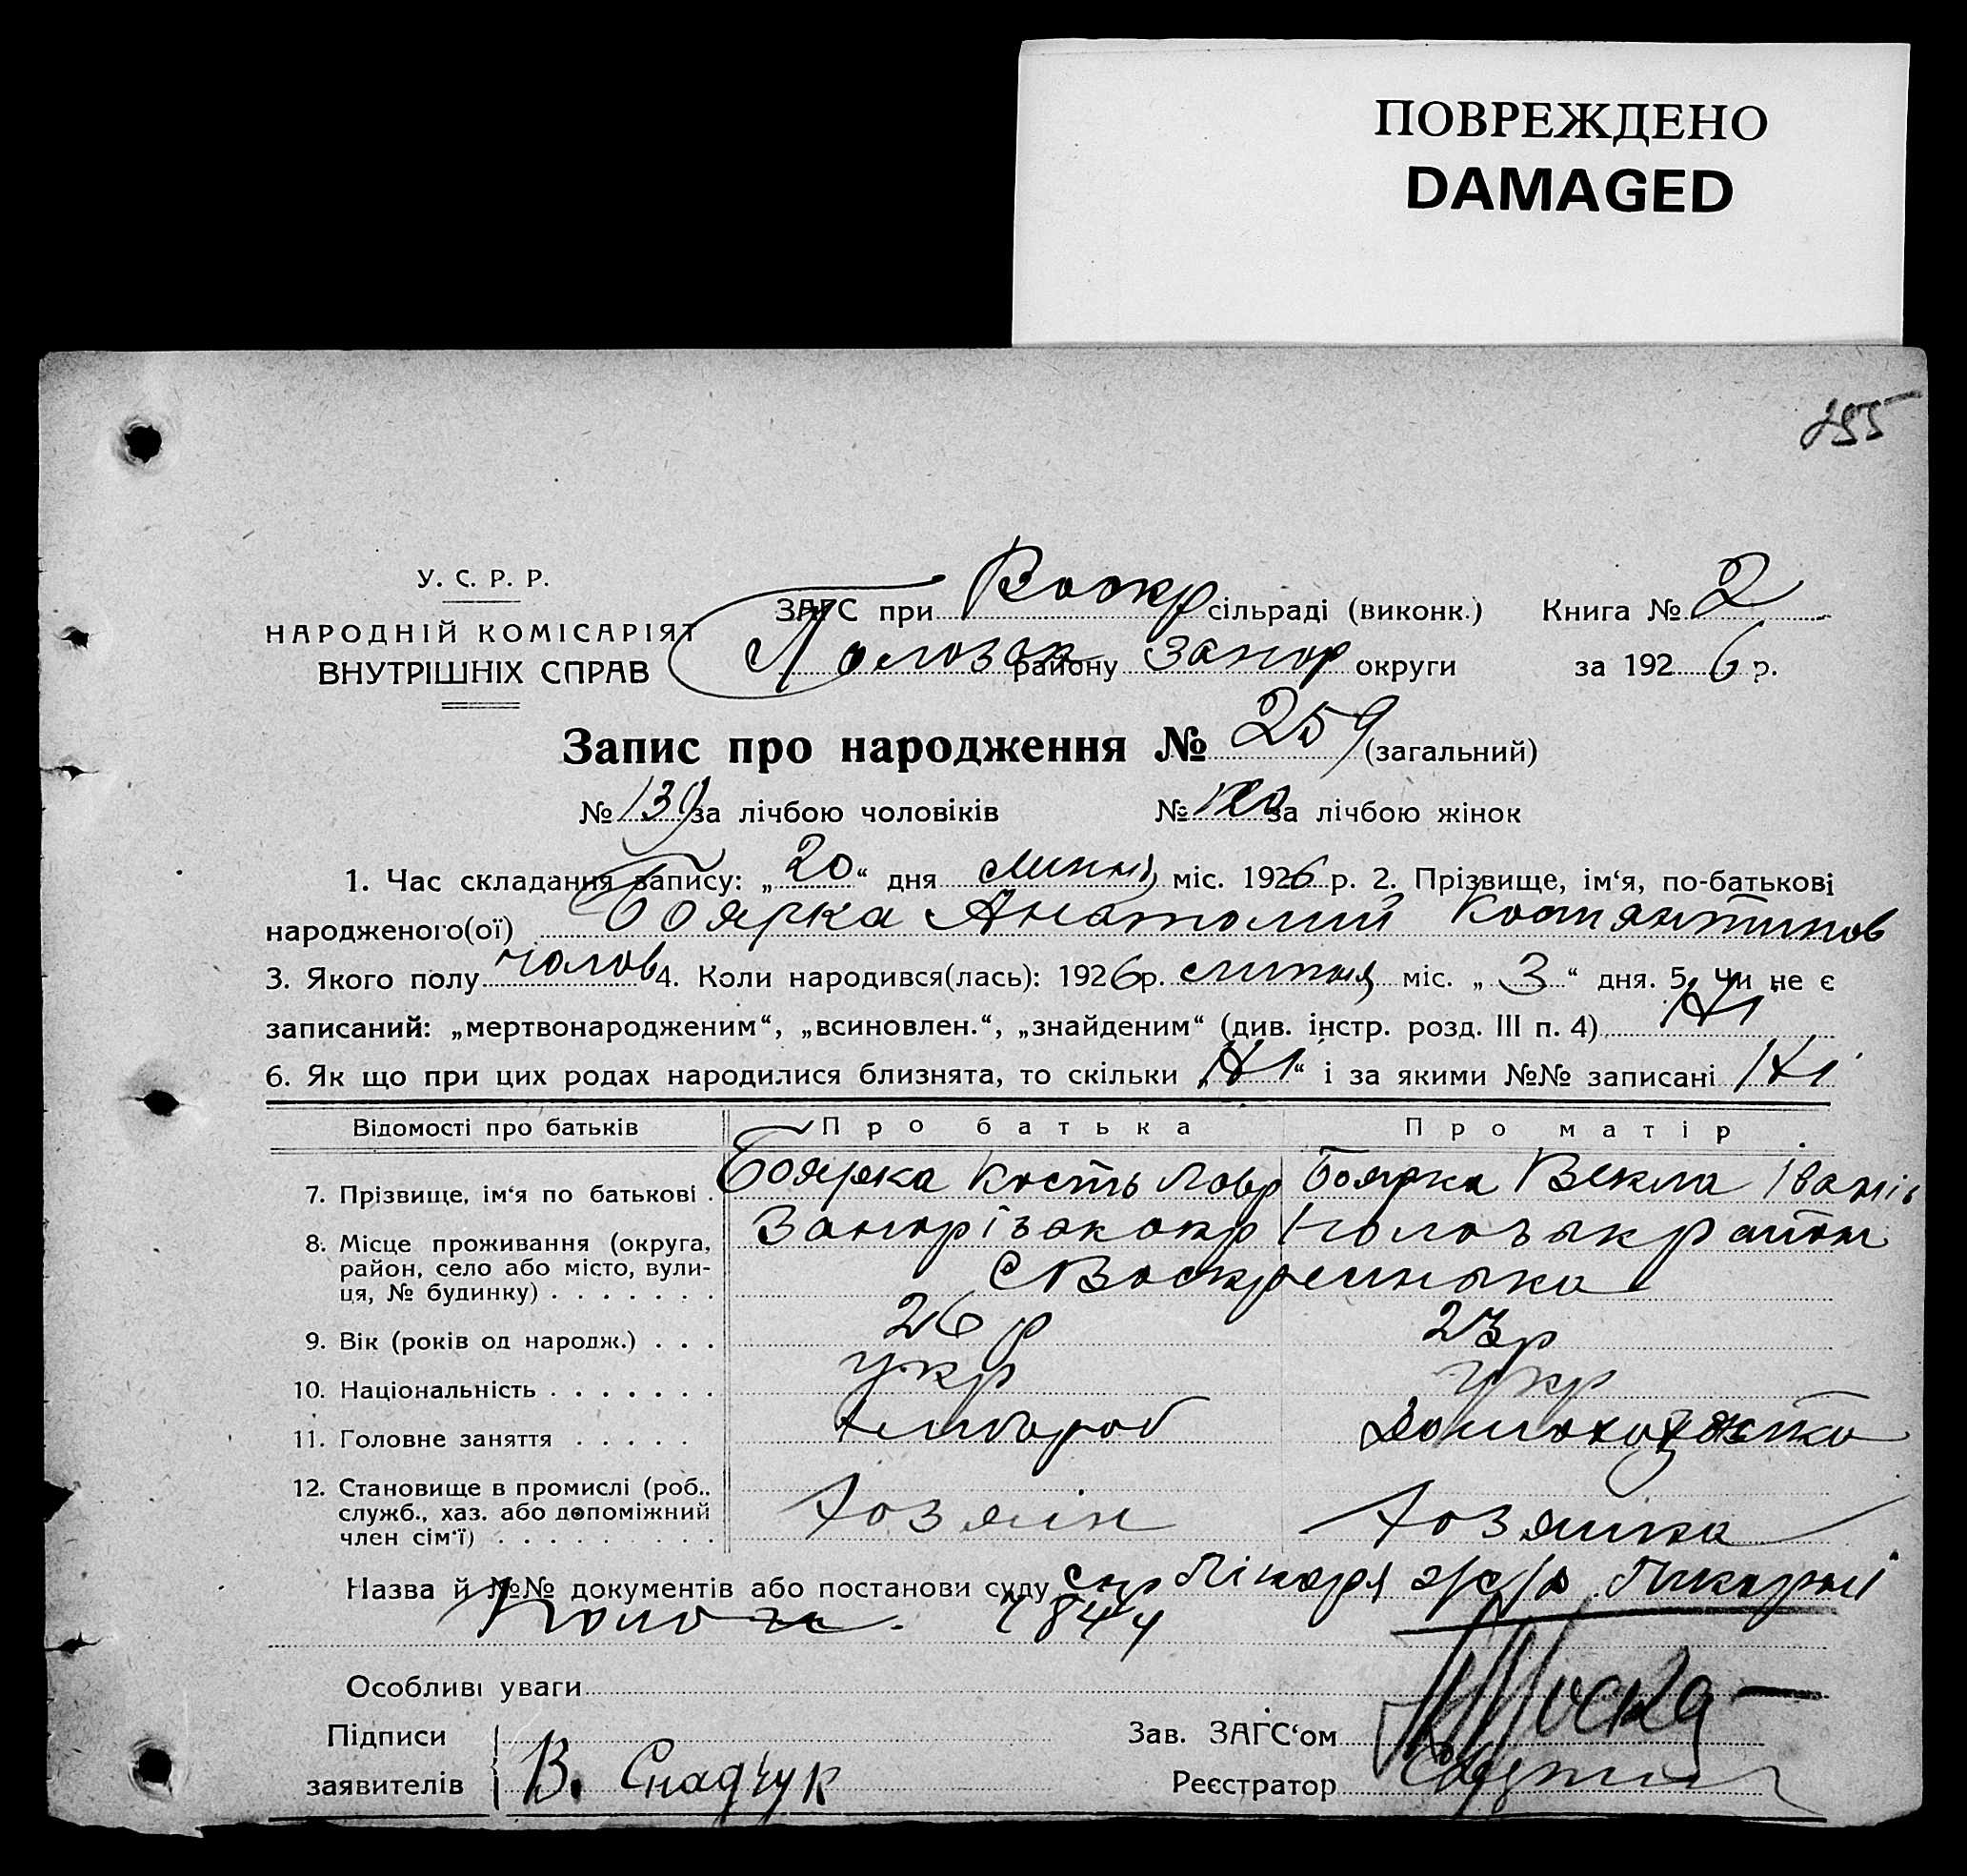 ПОВРЕЖДЕНО
DAMAGED
255
У. С. Р. Р.
НАРОДНІЙ КОМІСАРІЯТ
ВНУТРІШНІХ СПРАВ
ЗАГС при Воскр сільраді (виконк.) Книга № 2
Пологов району Запор округи за 1926 р.
Запис про народження № 259 (загальний)
№ 139 за лічбою чоловіків № 120 за лічбою жінок
1. Час складання запису: „20“ дня липня міс. 1926 р. 2. Прізвище, ім‘я, по-батькові
народженого(ої) Боярка Анатолий Костянтинов
3. Якого полу чолов 4. Коли народився(лась): 1926 р. липня міс. „3“ дня. 5. Чи не є
записаний: „мертвонародженим“, „всиновлен.“, „знайденим“ (див. інстр. розд. III п. 4) Ні
6. Як що при цих родах народилися близнята, то скільки „Ні“ і за якими №№ записані Ні
Відомості про батьків Про батька Про матір
7. Прізвище, ім‘я по батькові . Боярка Кость Лавр Боярка Векла Іванів
8. Місце проживання (округа, район, село або місто, вулиця, № будинку) . . . . . . . Запорізьк окр район
с Воскресенька
9. Вік (років од народж.) . . . 26 р 23 р
10. Національність . . . . . . . укр укр
11. Головне заняття . . . . . Хлібороб Домохазяйка
12. Становище в промислі (роб., служб., хаз. або допоміжний член сім‘ї) . . . . . . . . . Хозяин Хозяика
Назва й №№ документів або постанови суду Лікаря
1844
Особливі уваги
Підписи
заявителів В. Снадчук
Зав. ЗАГС‘ом
Реєстратор